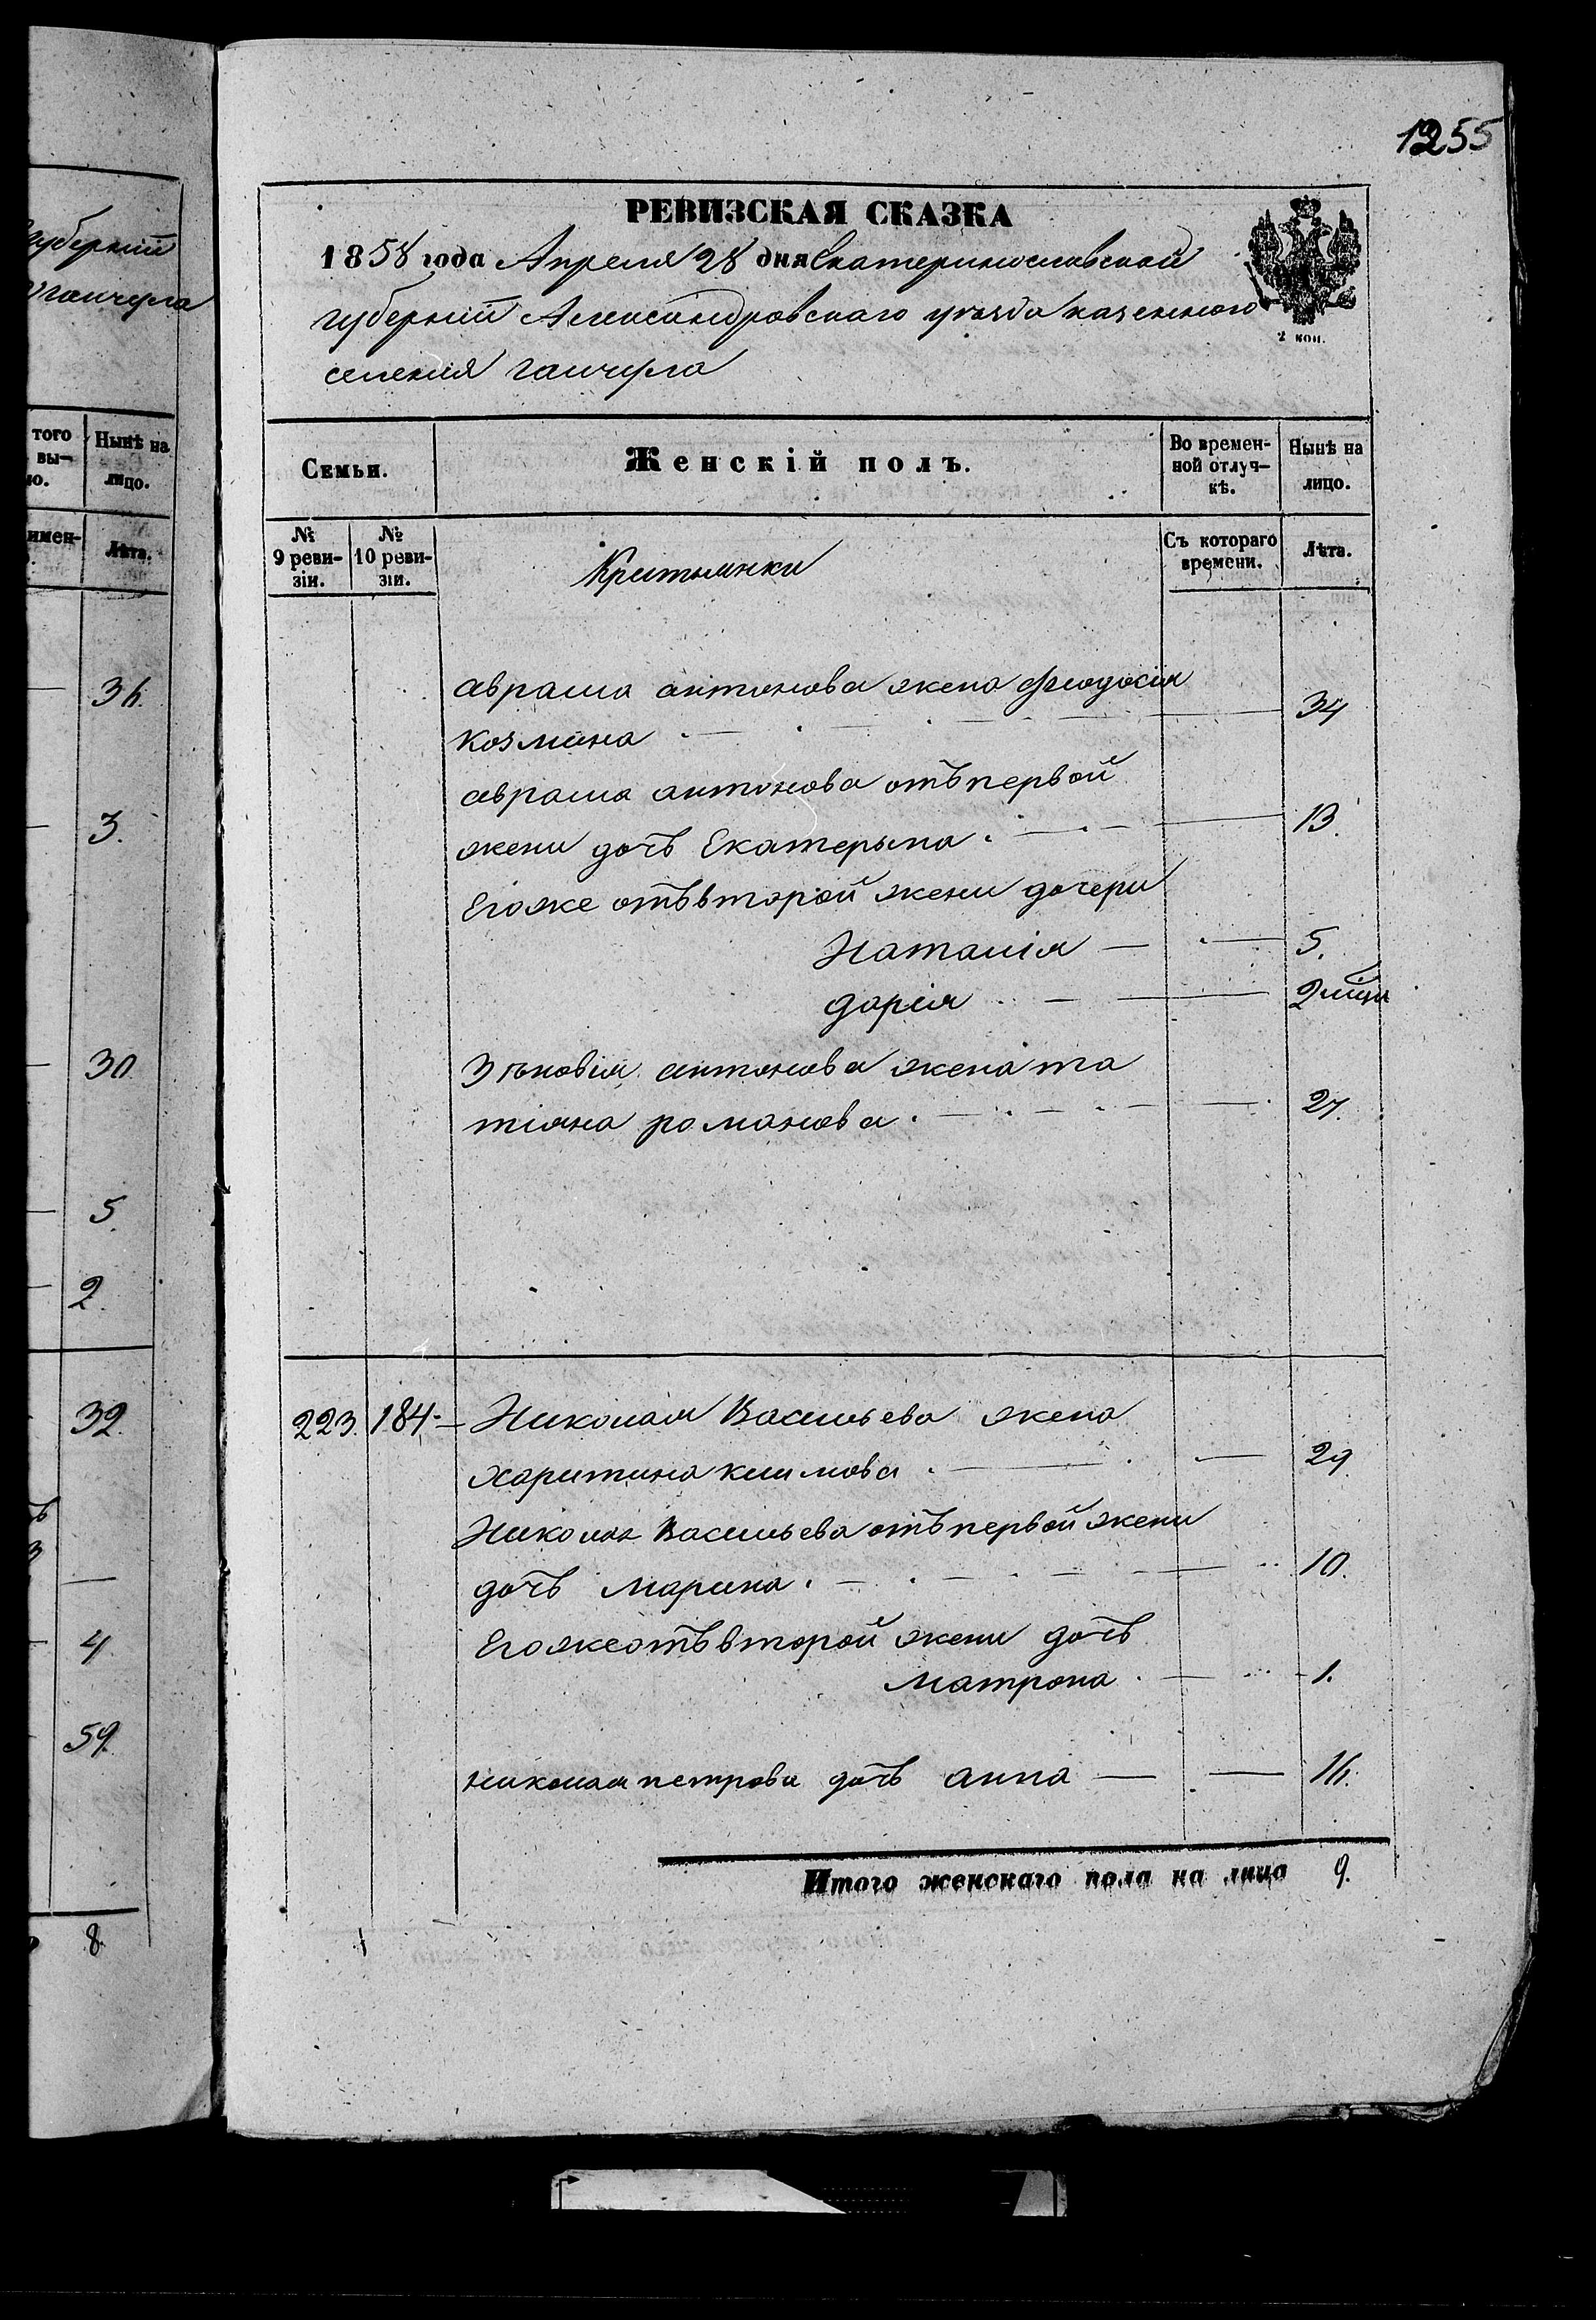 губерній
гаичула
того
вы-
но.
Нынѣ на
лицо.
имен-
Лѣта.
36.
3.
30
5.
2.
32.
4
59.
8.
1255
РЕВИЗСКАЯ СКАЗКА
1858 года Апреля 28 дня Екатеринославской
губерній Александровскаго уезда казенного
селенія гаичула
2 коп.
Семьи.
Женскій полъ.
Во времен-
ной отлуч-
кѣ.
Нынѣ на
лицо.
№
9 реви-
зіи.
№
10 реви-
зіи.
Крестьянки
Съ котораго
времени.
Лѣта.
аврама антонова жена феодосія
козмина 34
аврама антонова отъ первой
жени дочь Екатерына 13.
Егоже отъ второй жени дочери
Наталія 5.
дарія 2 мѣця
Зѣновія антонова жена та
тіяна романова 27.
223. 184. Николая Васильева жена
харитина климова 29.
Николая Васильева отъ первой жени
дочь марина 10.
Егоже отъ второй жени дочь
матрона 1.
николая петрова дочь анна 16.
Итого женскаго пола на лицо 9.